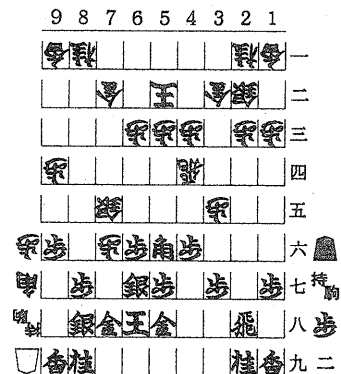 9 8 7 6 5 4 3 2 1
香 桂 桂 香 一
金 王 金 銀 二
歩 歩 歩 歩 歩 三
歩 飛 四
銀 歩 五
歩 歩 歩 歩 角 歩 六
角 歩 銀 歩 歩 歩 七 持駒
持駒 銀 金 王 金 飛 八 歩
香 桂 桂 香 九 二